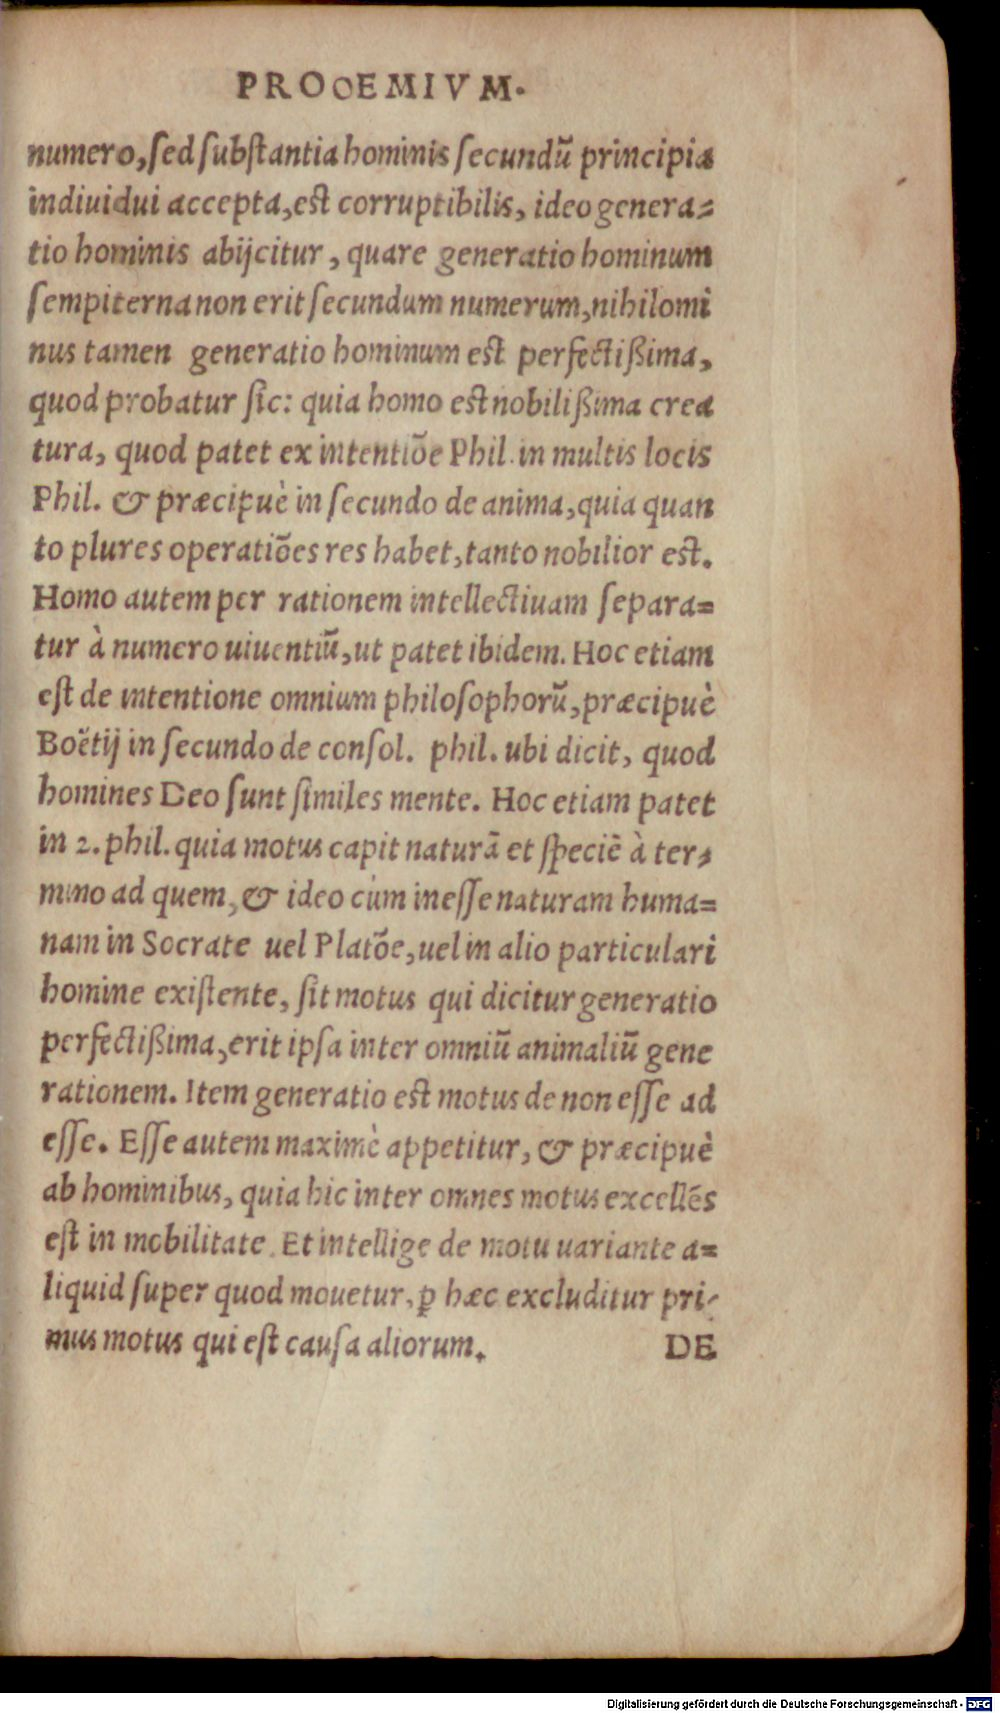 PROOEMIVM.
numero, sed substantia hominis secundũ principia
indiuidui accepta, est corruptibilis, ideo genera-
tio hominis abijcitur, quare generatio hominum
sempiterna non erit secundum numerum, nihilomi
nus tamen generatio hominum est perfectißima,
quod probatur sic: quia homo est nobilißima crea
tura, quod patet ex intentiõe Phil. in multis locis
Phil. & præcipuè in secundo de anima, quia quan
to plures operatiões res habet, tanto nobilior est.
Homo autem per rationem intellectiuam separa=
tur à numero uiuentiũ, ut patet ibidem. Hoc etiam
est de intentione omnium philosophorũ, præcipuè
Boëtij in secundo de consol. phil. ubi dicit, quod
homines Deo sunt similes mente. Hoc etiam patet
in 2. phil. quia motus capit naturã et speciẽ à ter-
mino ad quem, & ideo cùm inesse naturam huma=
nam in Socrate uel Platõe, uel in alio particulari
homine existente, sit motus qui dicitur generatio
perfectißima, erit ipsa inter omniũ animaliũ gene
rationem. Item generatio est motus de non esse ad
esse. Esse autem maximè appetitur, & præcipuè
ab hominibus, quia hic inter omnes motus excellẽs
est in mobilitate. Et intellige de motu uariante a=
liquid super quod mouetur, ꝑ hæc excluditur pri-
mus motus qui est causa aliorum. DE
Digitalisierung gefördert durch die Deutsche Forschungsgemeinschaft - DFG